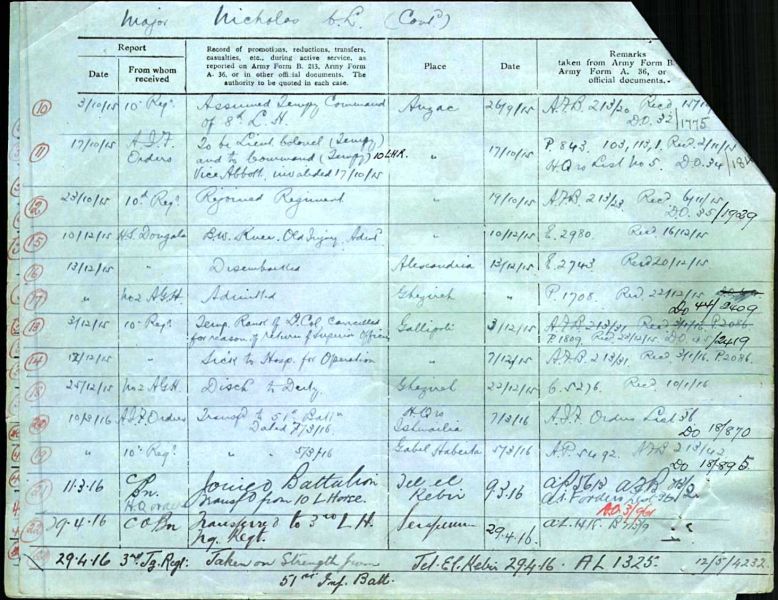 Major Nicholas C. L. (Cont)
Report
Record of promotions, reductions, transfers, casualties, etc., during active service, as reported on Army Form B. 213, Army Form A. 36, or in other official documents. The authority to be quoted in each case.
Place
Date
Remarks
taken from Army Form B
Army Form A. 36, or
official documents.
Date
From whom received
10 3/10/15 10 Regt Assumed Tempy Command of 8th L.H. Anzac 26/9/15 A.F.B. 213/20 Recd 15/10
D.O. 32/1775
11 17/10/15 A.I.F Orders To be Lieut Colonel (Tempy) and to Command (Tempy) 10 L.H.R. Vice Abbott, invalided 17/10/15 " 17/10/15 P. 843. 103, 113, 1, Recd 2/11/15
H.Qrs List No 5. D.O. 34
12 23/10/15 10th Regt Rejoined Regiment " 19/10/15 A.F.B. 213/23 Recd 6/11/15
D.O. 35/1939
15 10/12/15 H.S. Dongala Knee Old Injury Admt 10/12/15 E. 2980 Recd 16/12/15
16 13/12/15 " Disembarked Alexandria 13/12/15 E. 2743 Recd 20/12/15
17 " No 2 A.G.H. Admitted Ghezireh " P. 1708. Recd 22/12/15
DO 44/2409
13 3/12/15 10 Regt Temp. Rank of Lt Col cancelled for reason of return of Superior Officer Gallipoli 3/12/15 A.F.B. 213/31 Recd 3/1/16 P2086
P. 1809. Recd 23/12/15 D.O. 45/2419
14 12/12/15 " Sick to Hosp. for Operation " 7/12/15 A.F.B. 213/31. Recd 3/1/16. P2086.
18 25/12/15 No 2 A.G.H. Disch to Duty. Ghezireh 22/12/15 C. 5276. Recd 10/1/16
20 10/3/16 A.I.F Orders Transfd to 51st Battn Dated 7/3/16 H.Qrs Ismailia 7/3/16 A.I.F Orders List 36
DO 18/870
19 " 10 Regt " " 5/3/16 Gabel Habeita 5/3/16 A.P. 5492. A.F.B. 213/42
DO 18/895
11.3.16 C Bn. H.Q. orders Joined Battalion Transf'd from 10 L Horse. Tel el Kebir 9.3.16
D.O. 3/961
22 29.4.16 CO Bn Transferred to 3rd L.H. Tng. Regt. Serapeum 29.4.16.
29.4.16 3rd Tg. Regt: Taken on Strength from 51st Inf. Batt. Tel-El-Kebir 29.4.16. AL 1325. 12/5/4232